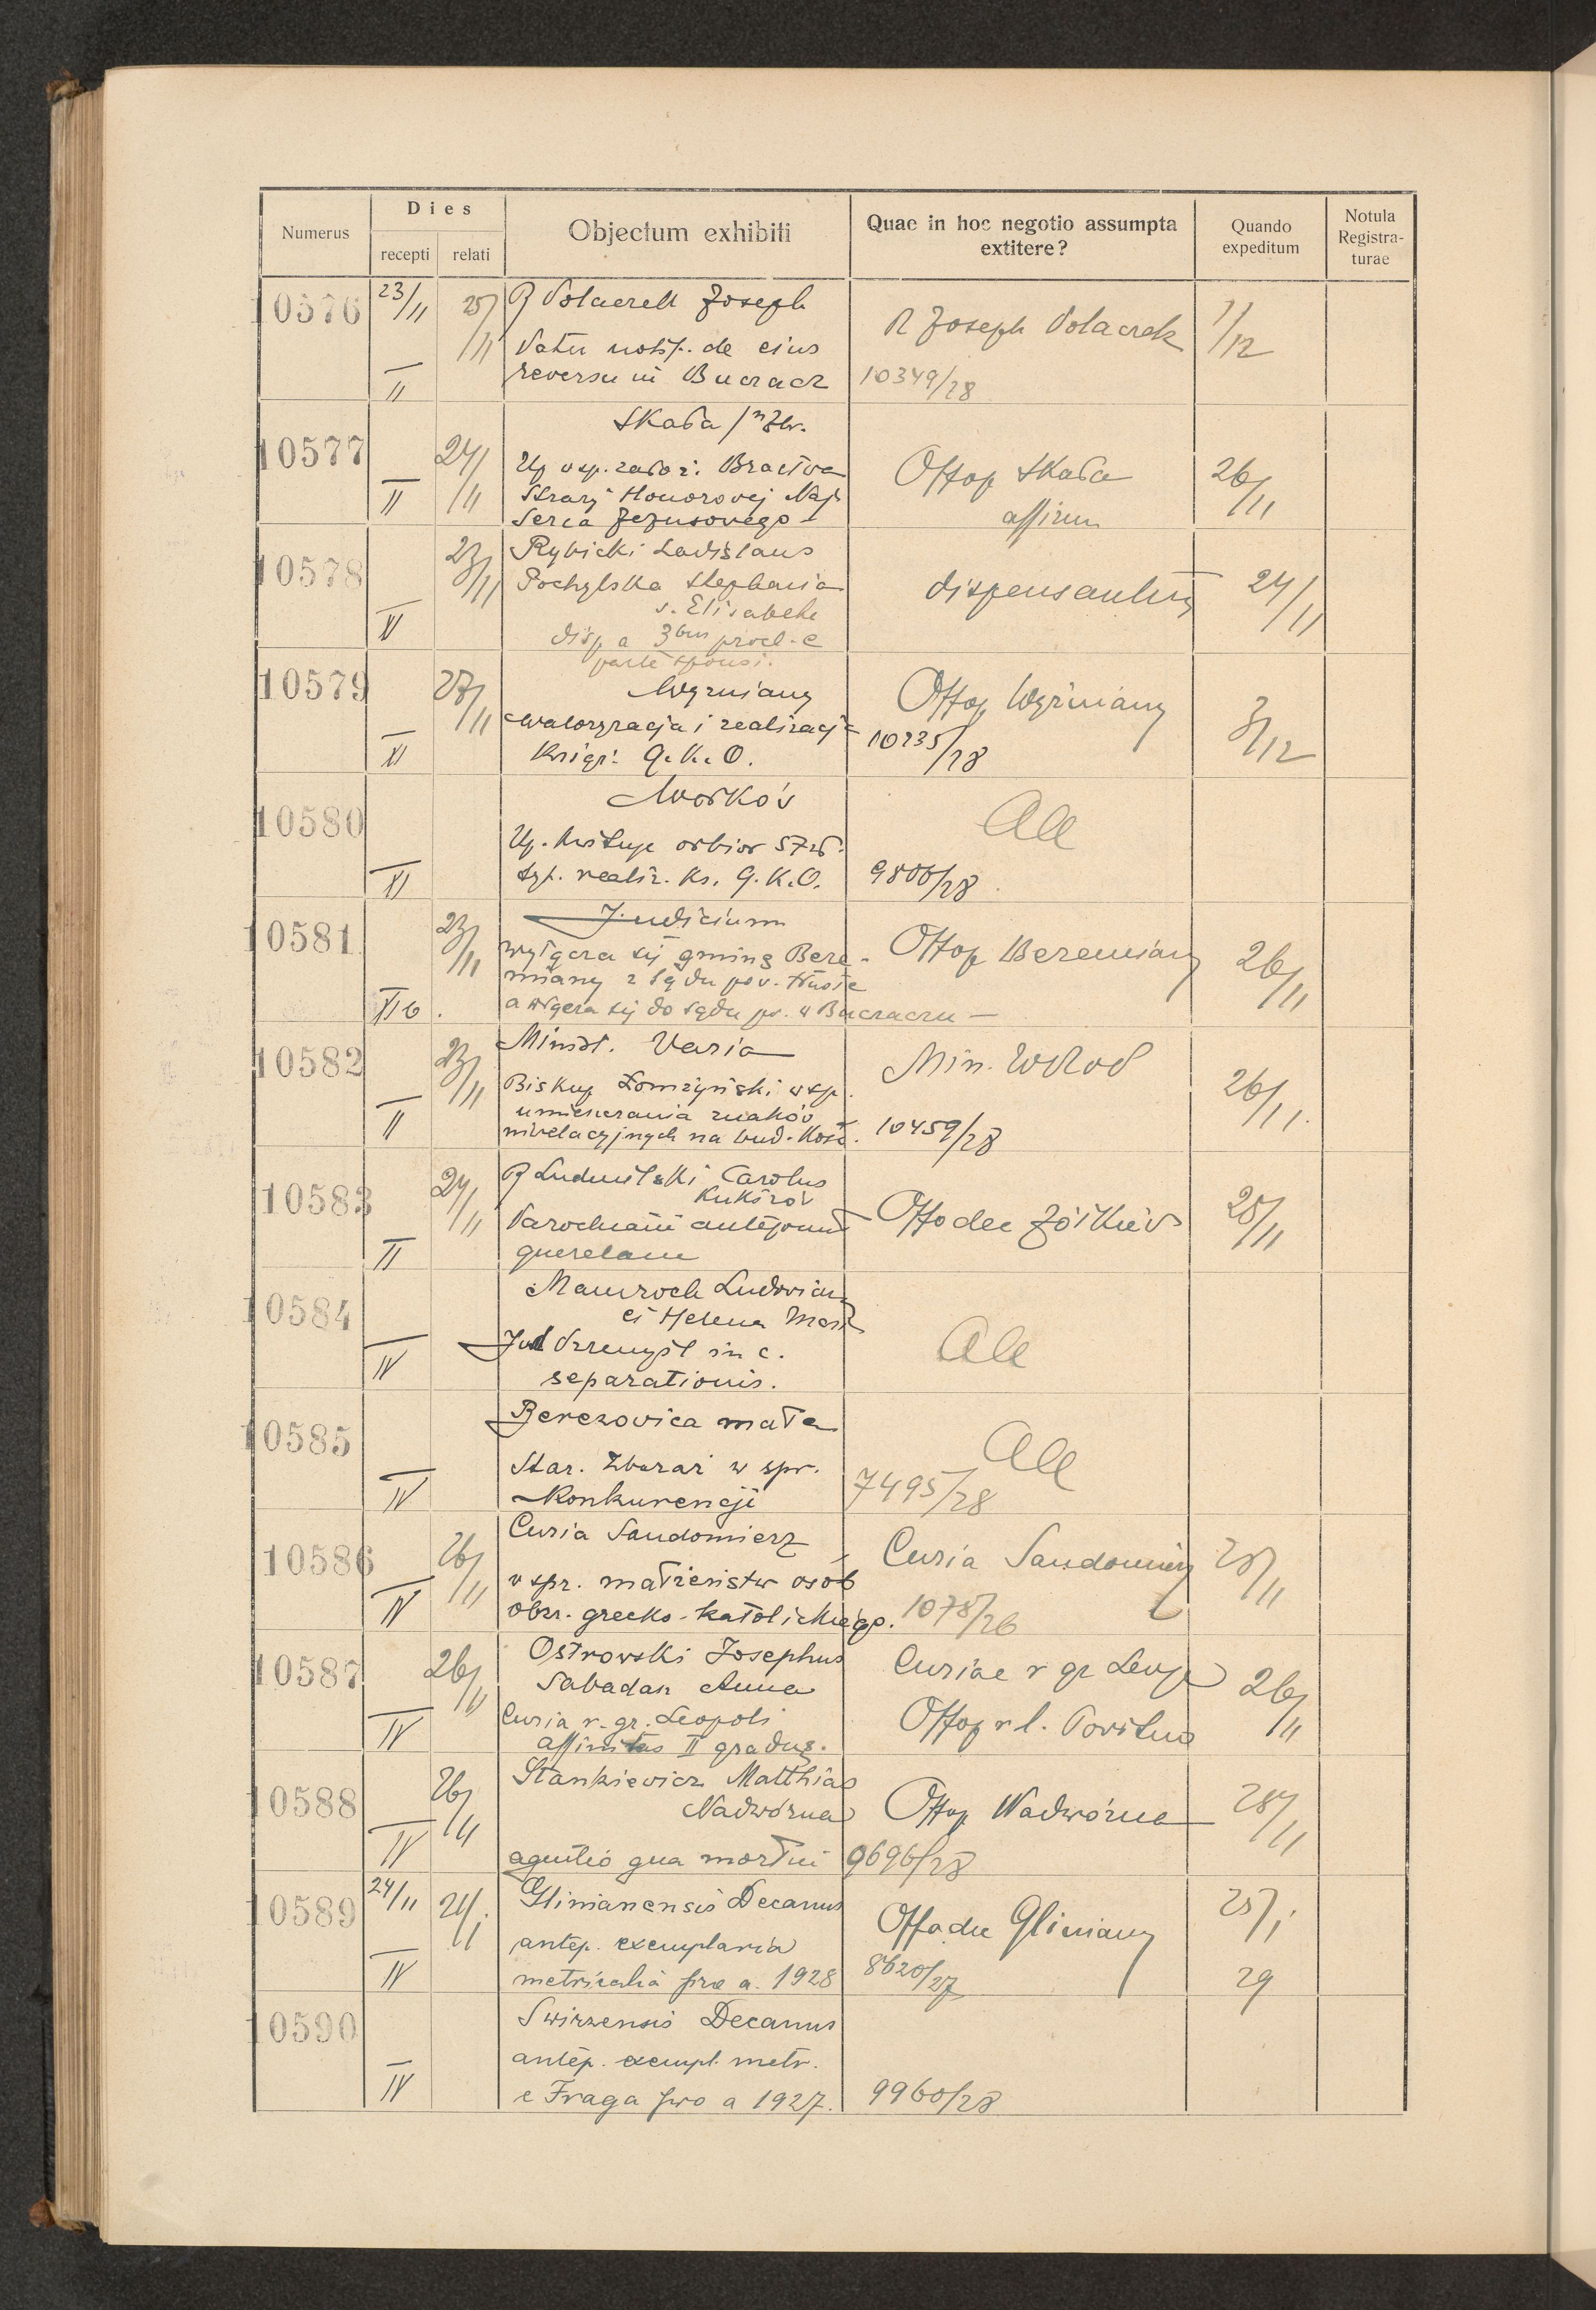 Numerus
Dies
recepti
relati
Objectum exhibiti
Quae in hoc negotio assumpta
extitere?
Quando
expeditum
Notula
Registra-
turae
10576
23/11
II
R Polaczek Joseph
notif. de eius
reversu in Buczacz
R Joseph Polaczek
10349/28
1/12
10577
24/11
II
Skała /n Zbr.
Up w sp. założ. Bractwa
Straży Honorowej Najś
Serca Jezusowego
Offop Skała
affirm
26/11
10578
23/11
IV
Rybicki Ladislaus
Pochylska Stephania
s. Elisabeth
disp a 3bus procl. e
parte sponsi.
dispensantur
24/11
10579
27/11
XI
Wyżniany
waloryzacja i realizacja
Książ. G.K.O.
Offop Wyżniany
10235/28
3/12
10580
XI
Mostków
Up. kwituje odbiór 57 zł.
realiz. Ks. G.K.O.
All
9806/28
10581
23/11
XIb.
Judicium
wyłącza się gminę Bere-
miany z Sądu pow. Tłuste
a włącza się do sądu po. w Buczaczu
Offop Beremiany
26/11
10582
23/11
II
Minist. Varia
Biskup Łomżyński w sp.
umieszczania znaków
niwelacyjnych na bud. Kość.
Min. WRoO
10459/28
26/11.
10583
24/11
II
R Ludmilski Carolus
Kukizów
Parochiani anteponunt
querelam
Offo dec Żółkiew
28/11
10584
IV
Mauroch Ludovicus
et Helena
Jud Przemyśl in c.
separationis.
All
10585
IV
Berezovica mała
Star. Zbaraż w spr.
Konkurencji
All
7495/28
10586
26/11
IV
Curia Sandomierz
w spr. małżeństw osób
obrz. grecko-katolickiego.
Curia Sandomierz
1078/26
28/11
10587
26/11
IV
Ostrowski Josephus
Sabadan Anna
Curia r. gr. Leopoli
affinitas II gradus.
Curiae r gr Leop
Offop r l.
26/11
10588
26/11
IV
Stankiewicz Matthias
Nadwórna
agnitio qua mortui
Offop Nadwórna
9696/28
28/11
10589
24/11
IV
Glinianensis Decanus
antep. exemplaria
metricalia pro a. 1928
Offo dec Gliniany
8620/27
25/1
29
10590
IV
Swirzensis Decanus
antep. exempl. metr.
e Fraga pro a 1927.
9960/28